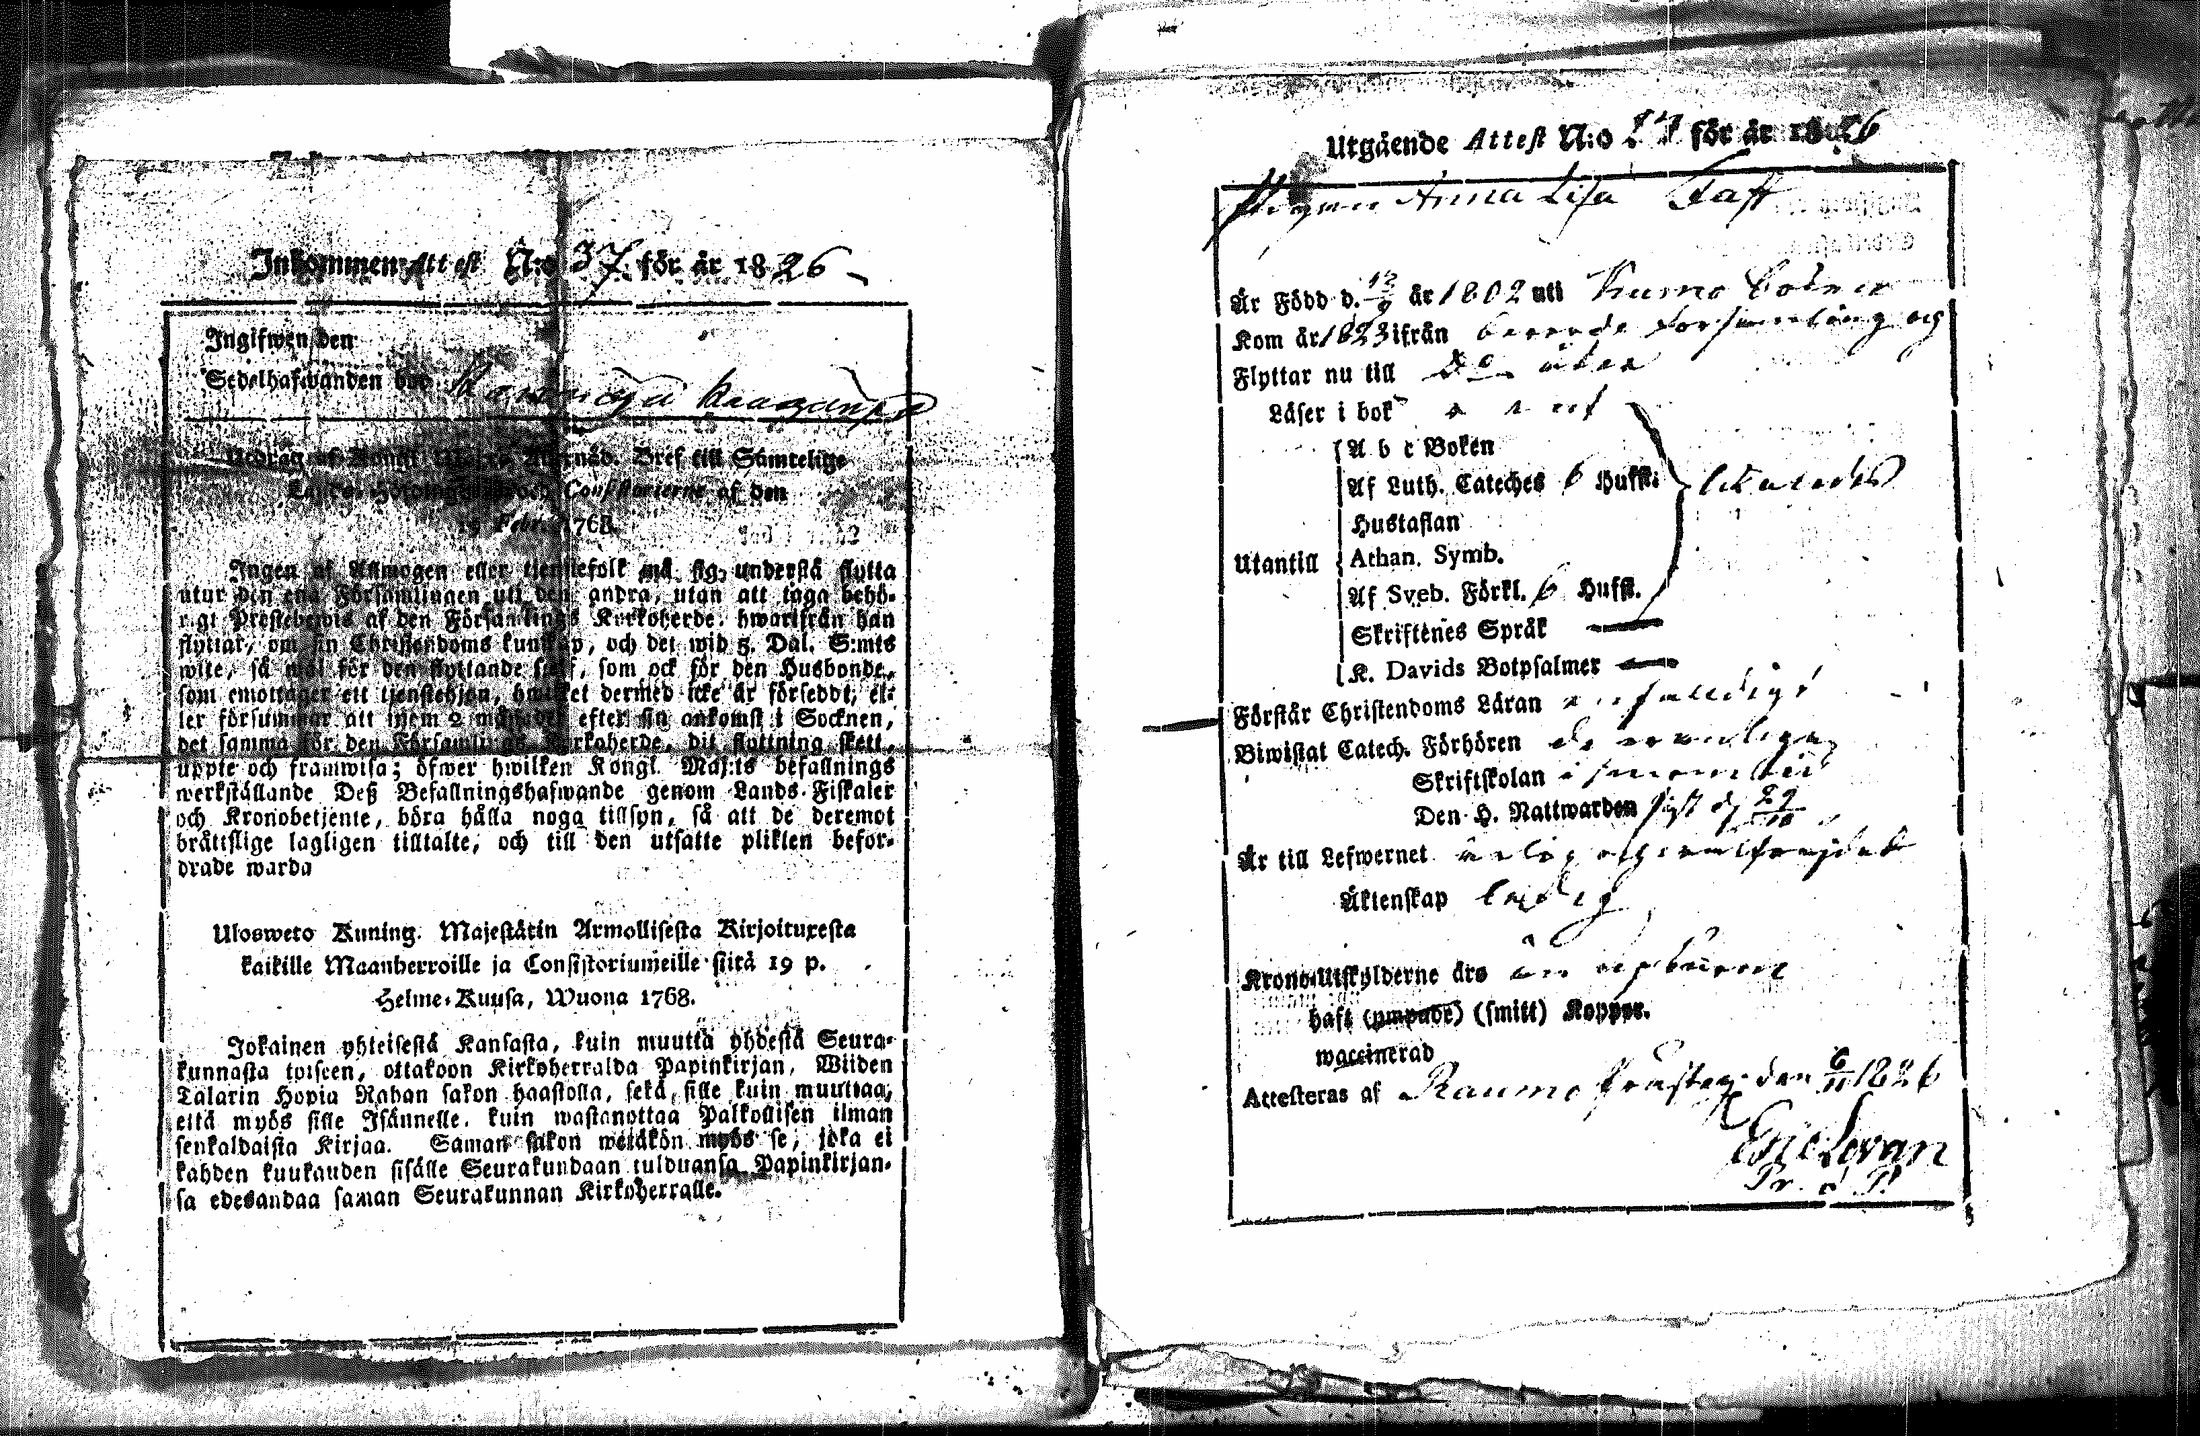 Inkommen Attest N:o 37 för år 1826
Ingifwen den
Sedelhafwanden bor
Utdrag af Kongl. Maj:ts Allernåd. Bref till Samtelige
Landshöfdingar och Consistorierne af den
19 Febr. 1768.
Ingen af Allmogen eller tjenstefolk må sig understå flytta
utur den ena Församlingen uti den andra, utan att taga behö-
rigt Prestebewis af den Församlings Kyrkoherde, hwarifrån han
flyttar, om sin Christendoms kunskap, och det wid 5. Dal. S:mts
wite, så wäl för den flyttande sjelf, som ock för den Husbonde,
som emottager ett tjenstehjon, hwilket dermed icke är försedt, el-
ler försummar att inom 2 månader efter sin ankomst i Socknen,
det samma för den Församlings Kyrkoherde, dit flyttning skett,
uppte och framwisa; öfwer hwilken Kongl. Maj:ts befallnings
werkställande Deß Befallningshafwande genom Lands-Fiskaler
och Kronobetjente, böra hålla noga tillsyn, så att de deremot
bråttslige lagligen tilltalte, och till den utsatte plikten befor-
drade warda
Ulosweto Kuning. Majestätin Armollisesta Kirjoituxesta
kaikille Maanherroille ja Consistoriumeille siitä 19 p.
Helme-Kuusa, Wuona 1768.
Jokainen yhteisestä Kansasta, kuin muuttä yhdestä Seura-
kunnasta toiseen, ottakoon Kirkoherralda Papinkirjan, Wiiden
Talarin Hopia Rahan sakon haastolla, sekä sille kuin muuttaa,
että myös sille Isännelle, kuin wastanottaa Palkollisen ilman
senkaldaista Kirjaa. Saman sakon wetäkön myös se, joka ei
kahden kuukauden sisälle Seurakundaan tulduansa Papinkirjan-
sa edesandaa saman Seurakunnan Kirkoherralle.
Utgående Attest N:o 27 för år 1826
Pigan Anna Lisa Taff
Är Född d. 12/9 år 1802 uti Kumo Socken
Kom år 1823 ifrån berörde Församling och
Flyttar nu till
Läser i bok
A b c Boken
Af Luth. Cateches 6 Hufst.
Hustaflan
Utantill Athan. Symb.
Af Sveb. Förkl. 6 Hufst.
Skriftenes Språk —
K. Davids Botpsalmer —
Förstår Christendoms Läran enfaldigt
Biwistat Catech. Förhören
Skriftskolan
Den H. Nattwarden sist d. 29/10
Är till Lefwernet ärlig och
Äktenskap ledig
Krono-Utskylderne äro
haft (ympade) (smitt) Koppor.
waccinerad
Attesteras af Raumo den 6/11 1826
Eric Lovan